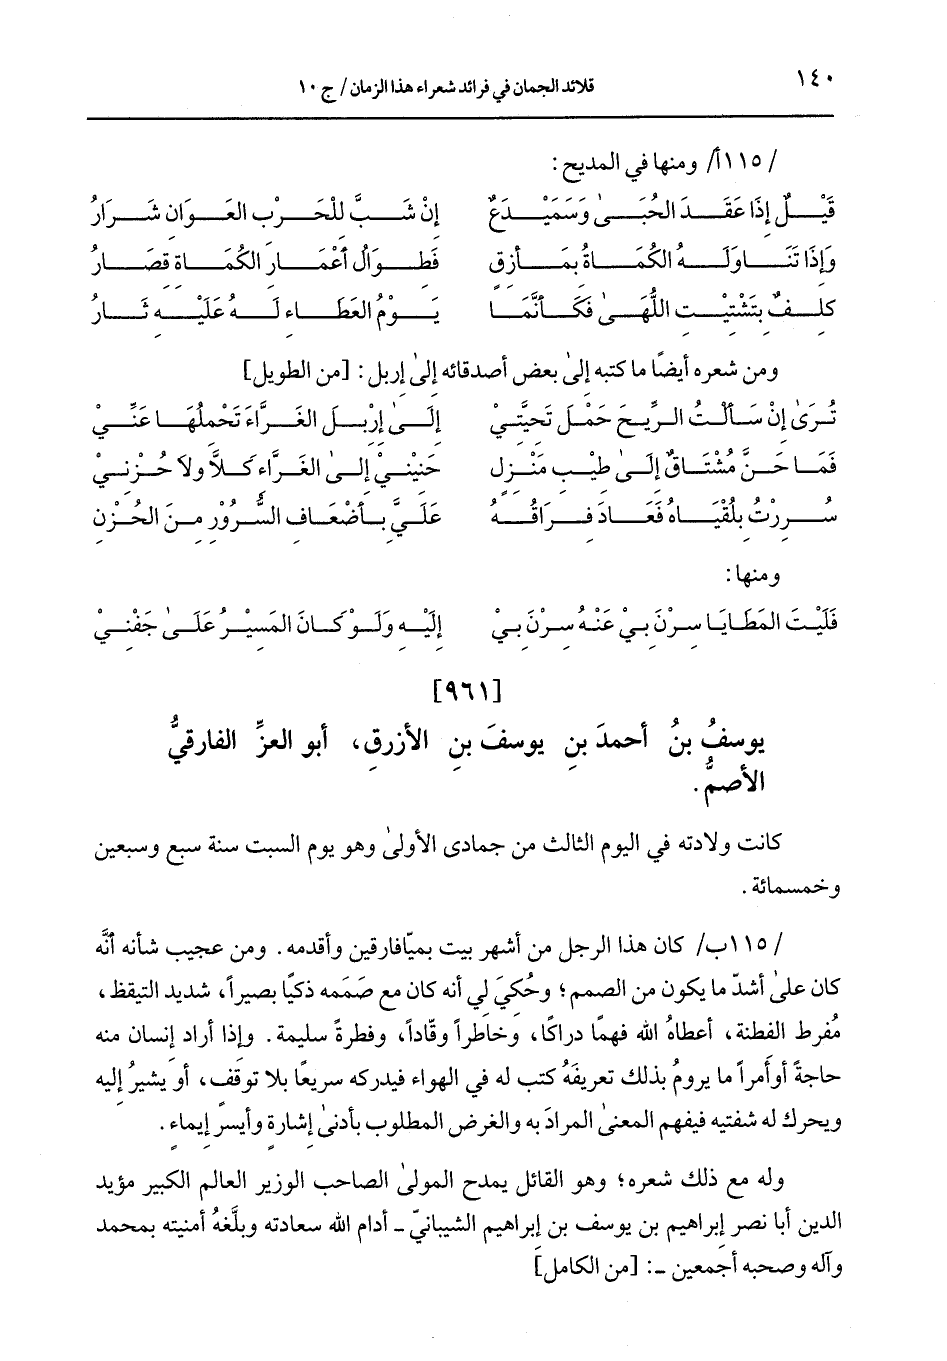 ١٤٠
قلائد الجمان في فرائد شعراء هذا الزمان / ج ١٠
/ ١١٥أ/ ومنها في المديح :
قَيْــلٌ إذَا عَقَــدَ الحُبَــىٰ وَسَمَيْــدَعٌ إنْ شَــبَّ للْحَــرْب العَــوَان شَــرَارُ
وَإذَا تَنَــاوَلَــهُ الكُمَــاةُ بمَــأزق فَطــوَالُ أعْمَــار الكُمَــاة قصَــارُ
كلــفٌ بتَشْتيْــت اللُّهَــىٰ فَكَــأنَّمَــا يَــوْمُ العَطَــاء لَــهُ عَلَيْــه ثَــارُ
ومن شعره أيضًا ما كتبه إلىٰ بعض أصدقائه إلىٰ إربل : [من الطويل]
تُــرَىٰ إنْ سَــألْــتُ الــرِّيــحَ حَمْــلَ تَحيَّتــيْ إلَــىٰ إرْبــل الغَــرَّاءَ تَحْملُهَــا عَنِّــيْ
فَمَــا حَــنَّ مُشْتَــاقٌ إلَــىٰ طيْــب مَنْــزل حَنيْنــيْ إلــىٰ الغَــرَّاء كَــلاَّ ولاَ حُــزْنــيْ
سُــررْتُ بلُقْيَــاهُ فَعَــادَ فــرَاقُــهُ عَلَــيَّ بــأضْعَــاف السُّــرُوْر مــنَ الحُــزْن
ومنها :
فَلَيْــتَ المَطَــايَــا ســرْنَ بــيْ عَنْــهُ ســرْنَ بــيْ إلَيْــه وَلَــوْ كَــانَ المَسيْــرُ عَلَــىٰ جَفْنــيْ
[٩٦١]
يوسفُ بنُ أحمدَ بنِ يوسفَ بنِ الأزرقِ، أبو العزِّ الفارقيُّ
الأصمُّ.
كانت ولادته في اليوم الثالث من جمادى الأولىٰ وهو يوم السبت سنة سبع وسبعين
وخمسمائة .
/ ١١٥ب/ كان هذا الرجل من أشهر بيت بميّافارقين وأقدمه. ومن عجيب شأنه أنَّه
كان علىٰ أشدّ ما يكون من الصمم؛ وحُكيَ لي أنه كان مع صَمَمه ذكيًا بصيراً، شديد التيقظ،
مُفرط الفطنة، أعطاهُ الله فهمًا دراكًا، وخاطراً وقّاداً، وفطرةً سليمة. وإذا أراد إنسان منه
حاجةً أو أمراً ما يرومُ بذلك تعريفَهُ كتب له في الهواء فيدركه سريعًا بلا توقف، أو يشيرُ إليه
ويحرك له شفتيه فيفهم المعنىٰ المرادَ به والغرض المطلوب بأدنىٰ إشارة وأيسرِ إيماءِ .
وله مع ذلك شعره؛ وهو القائل يمدح المولىٰ الصاحب الوزير العالم الكبير مؤيد
الدين أبا نصرِ إبراهيم بن يوسف بن إبراهيم الشيبانيّ ـ أدام الله سعادته وبلَّغهُ أمنيته بمحمد
وآله وصحبه أجمعين ـ: [من الكامل]